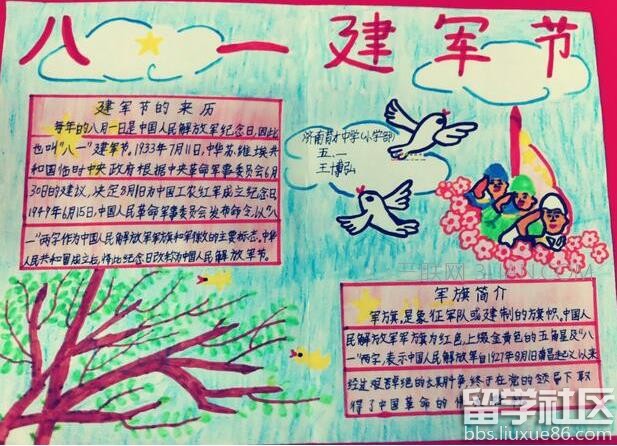 八一建军节
建军节的来历
每年的八月一日是中国人民解放军纪念日,因此
也叫“八一”建军节。1933年7月11日,中华苏维埃共
和国临时中央政府根据中央革命军事委员会6月
30日的建议,决定8月1日为中国工农红军成立纪念日。
1949年6月15日,中国人民革命军事委员会发布命令,以“八
一”两字作为中国人民解放军军旗和军徽的主要标志。中华
人民共和国成立后,将此纪念日改称为中国人民解放军建军节。
济南育才中学(小学部)
五、一
王博弘
军旗简介
军旗,是象征军队或建制的旗帜,中国人
民解放军军旗为红色,上缀金黄色的五角星及“八
一”两字,表示中国人民解放军自1927年8月1日南昌起义以来
经过艰苦卓绝的长期斗争,终于在党的领导下取
得了中国革命的
三联网 3LIAN.COM
留学社区
bbs.liuxue86.com